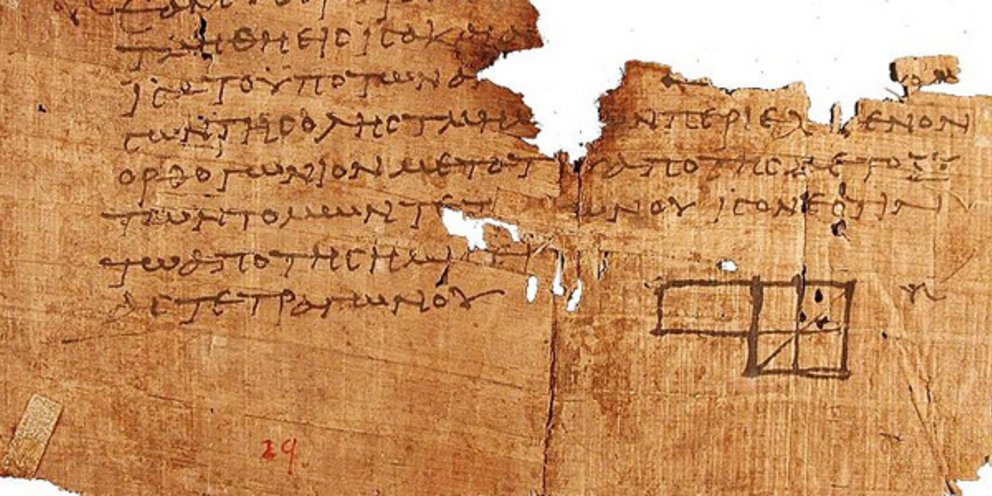 ΤΜΗΘΗ ΕΙϹ ΙϹΑ Κ
ΙϹΑ ΤΟ ΥΠΟ ΤΩΝ ΑΝ
ϹΩΝ ΤΗϹ ΟΛΗϹ ΤΜΗΜ ΩΝ ΠΕΡΙΕΧ ΜΕΝΟΝ
ΟΡΘΟΓΩΝΙΟΝ ΜΕΤΑ ΤΟΥ ΑΠΟ ΤΗϹ ΜΕΤΟΞΥ
ΤΩΝ ΤΟΜΩΝ ΤΕΤ ΩΝΟΥ ΙϹΟΝ ΕϹΤΙΝ
ΤΩ ΑΠΟ ΤΗϹ ΗΜΙ
ΑϹ ΤΕΤΡΑΓΩΝΟΥ
29